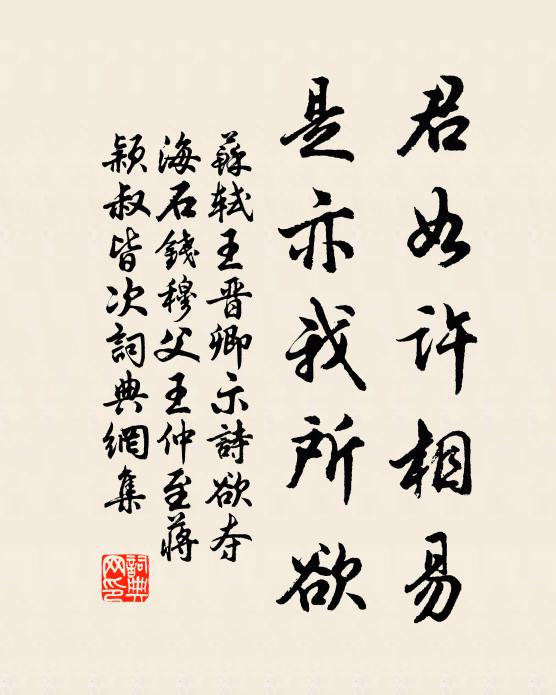 君如許相易
是亦我所欲
蘇軾王晋卿示詩欲夺
海石錢穆父王仲至蔣
颖叔皆次詞典網集
詞典
网印